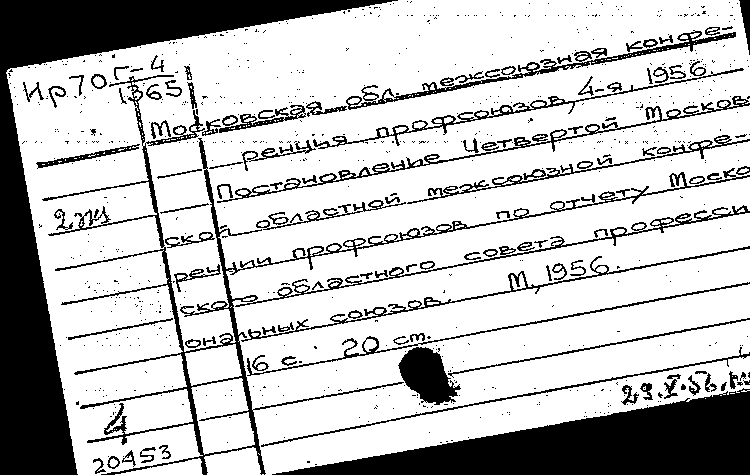 Ир70 Г-4
1365
Московская обл. межсоюзная конфе-
ренция профсоюзов, 4-я, 1956.
Постановление Четвертой Москов-
ской областной межсоюзной конфе-
ренции профсоюзов по отчету Моско
ского областного совета професси
ональных союзов. М., 1956.
16 с. 20 см.
2 эк
4
20453
29.V.56.